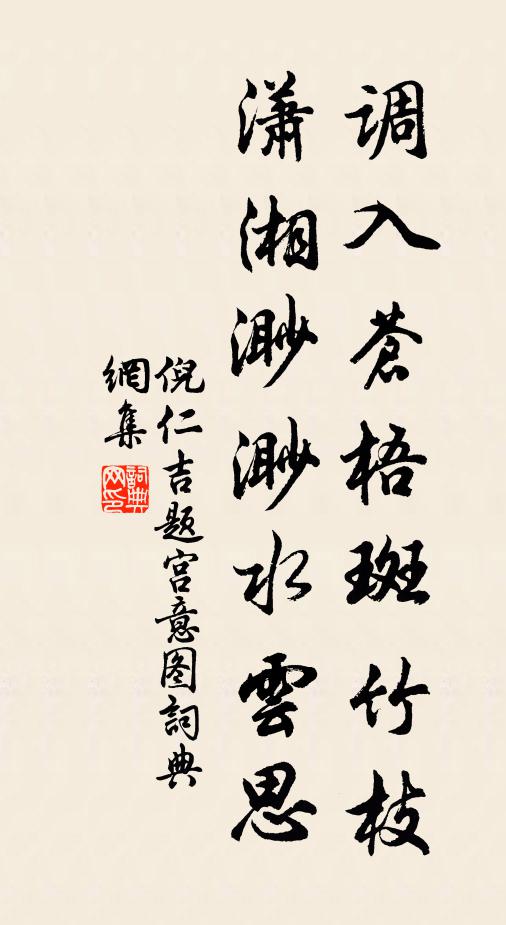 调入苍梧斑竹枝
瀟湘渺渺水雲思
倪仁吉题宫意图詞典
網集
詞典
网印